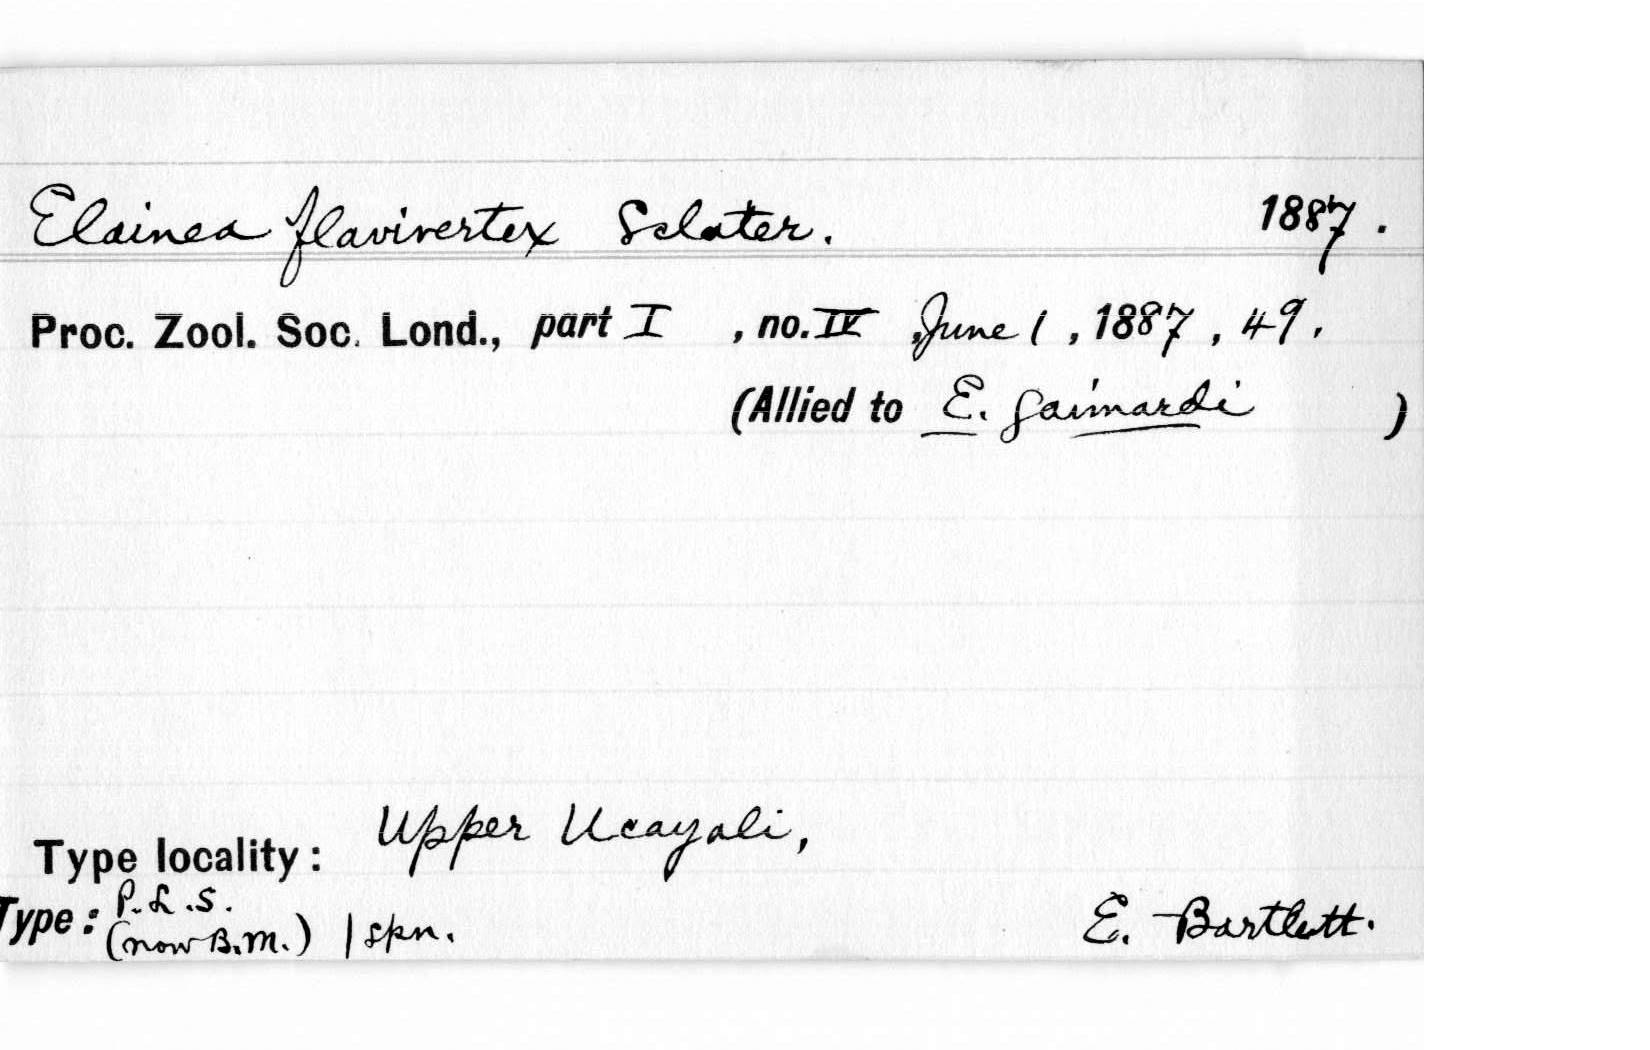 Elainea flavivertex Sclater. 1887.
Proc. Zool. Soc. Lond., part I , no. IV , June 1 , 1887 , 49 .
(Allied to E. gaimardi )
Type locality: Upper Ucayali,
Type: P.L.S.
(now B.M.) 1 spn. E. Bartlett.